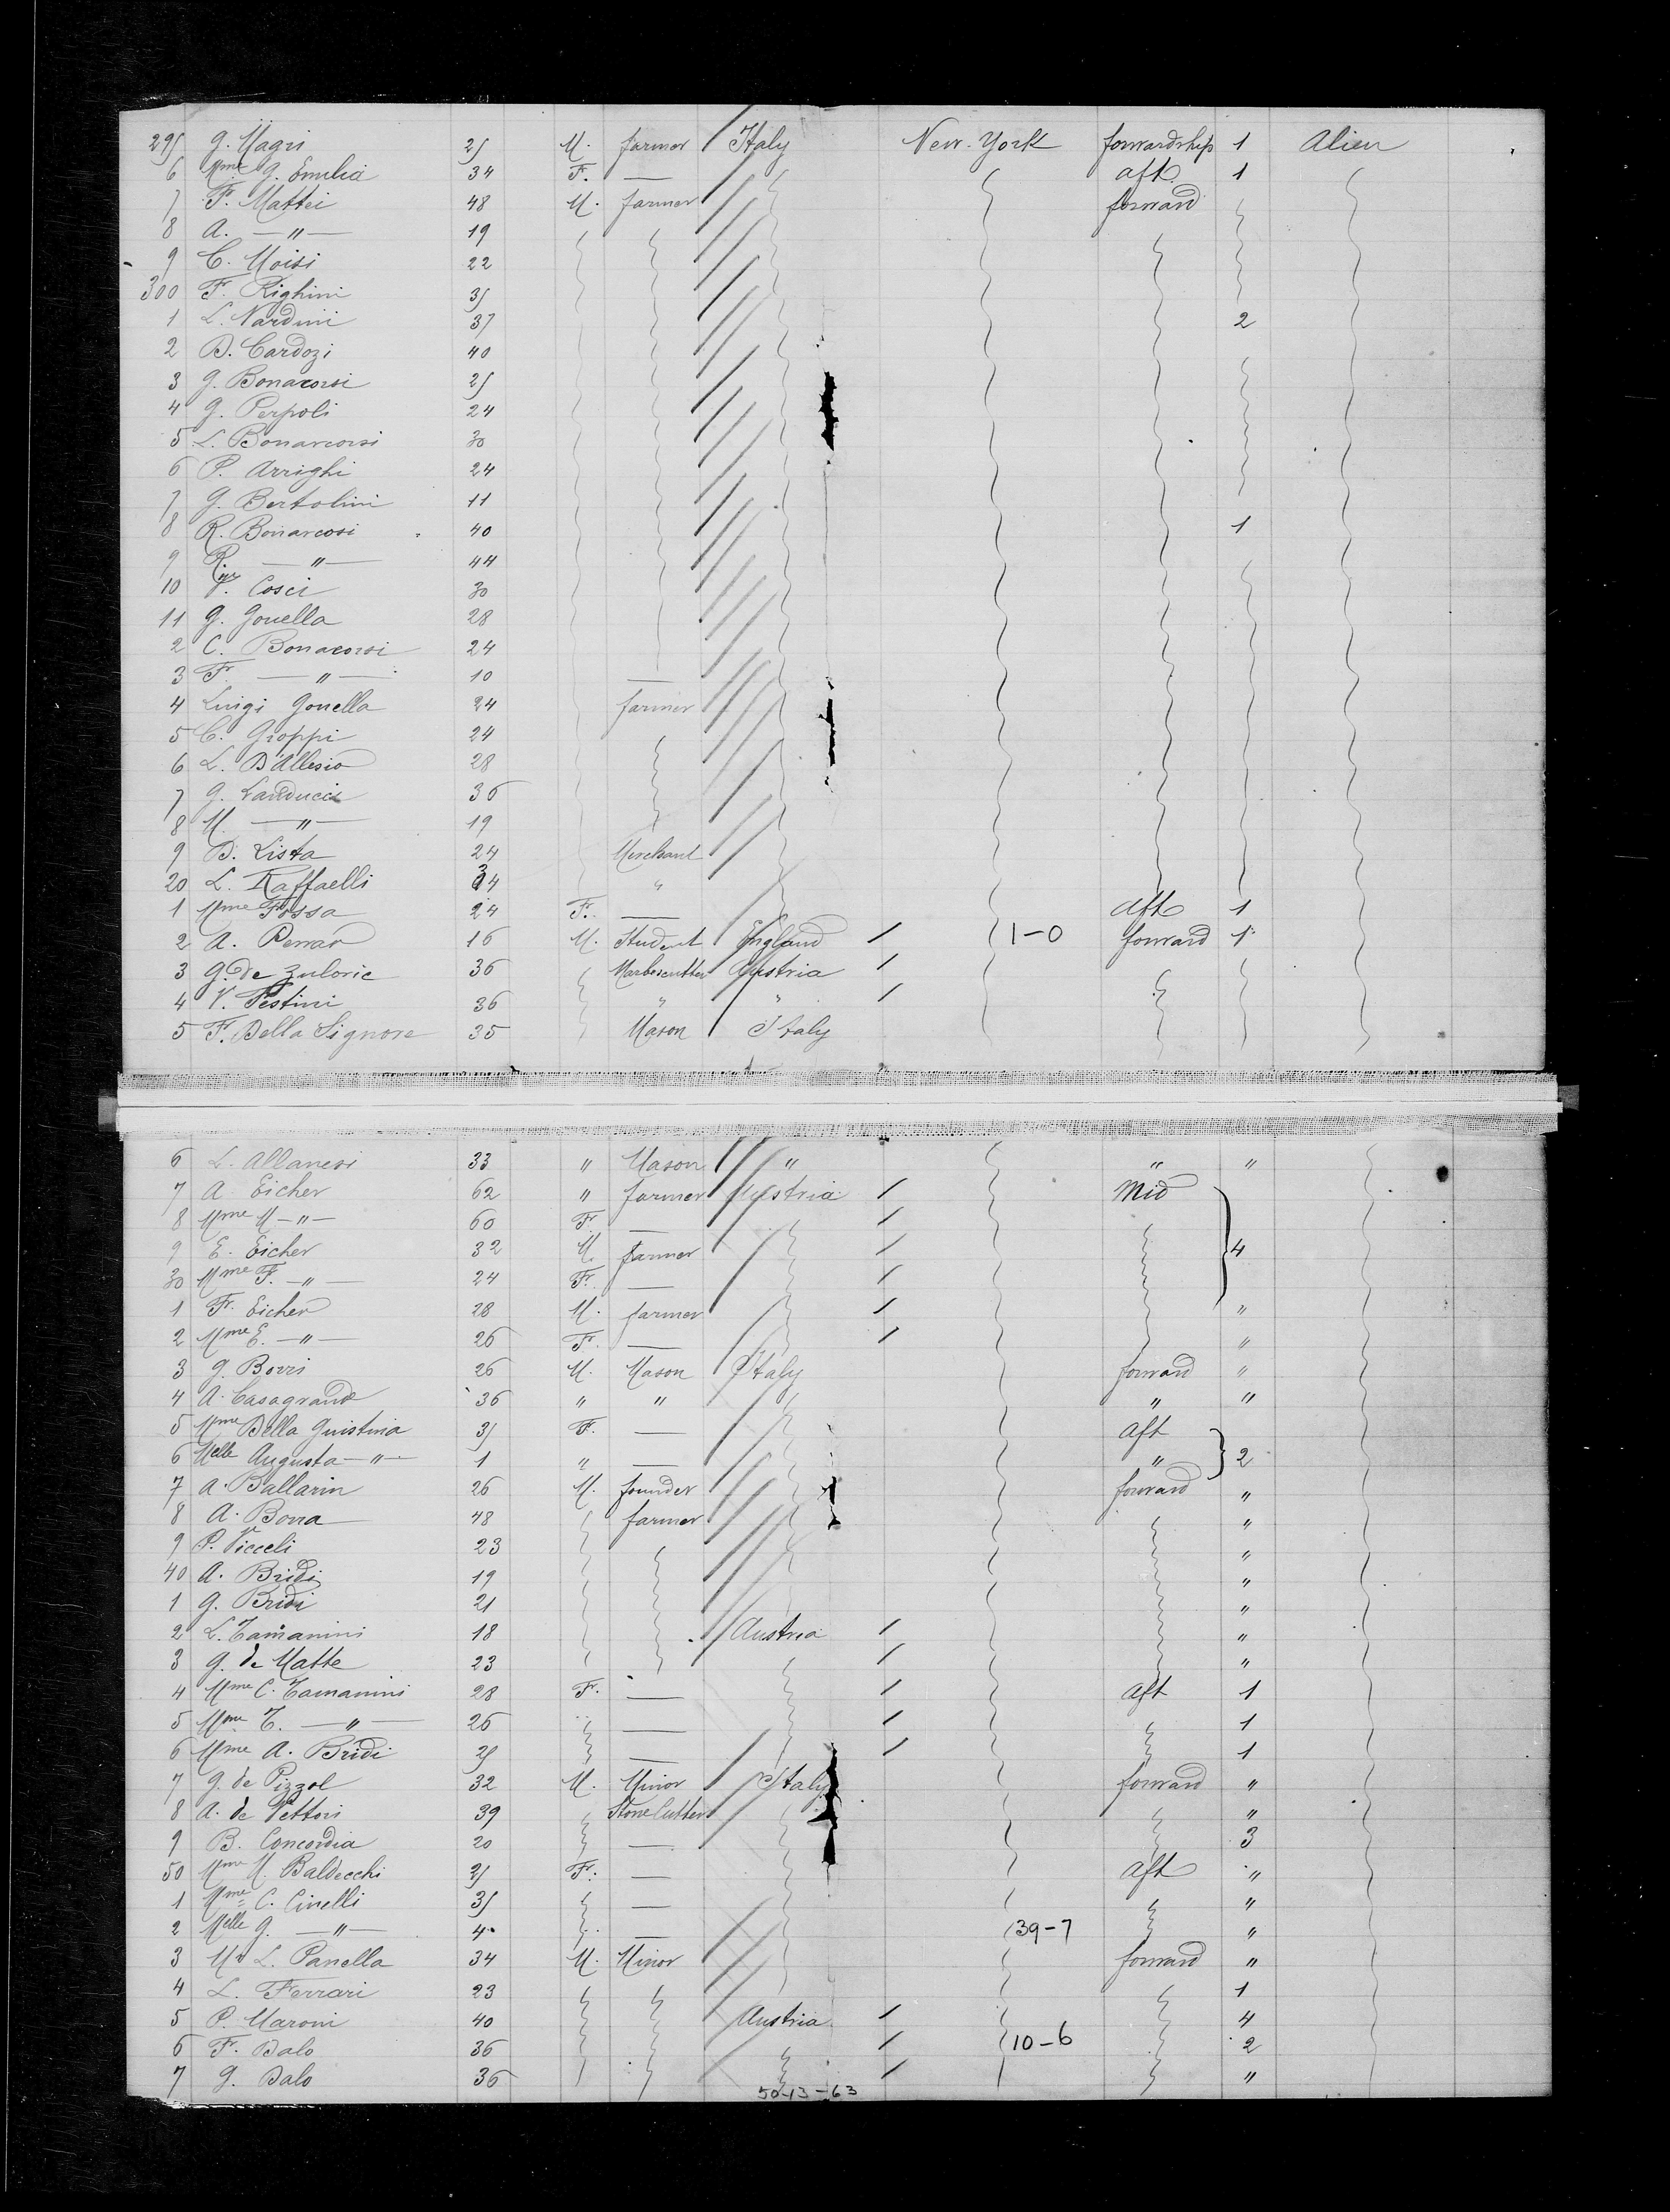 295 G. Magri 25 M. farmer Italy New-York forwardship 1 Alien
6 Mme G. Emilia 34 F. — aft 1
7 F. Mattei 48 M. farmer forward
8 A. —"— 19
9 C. Moisi 22
300 F. Righini 35
1 L. Nardini 37 2
2 D. Cardozi 40
3 G. Bonacorsi 25
4 G. Perpoli 24
5 L. Bonarcorsi 30
6 P. Arrighi 24
7 G. Bertolini 11
8 R. Bonarcosi 40 1
9 R. —"— 44
10 V. Cosci 30
11 G. Gonella 28
2 C. Bonacorsi 24
3 F. —"— 10 —
4 Luigi Gonella 24 farmer
5 C. Groppi 24
6 L. D'Allesio 28
7 G. Landucci 36
8 M. —"— 19
9 D. Lista 24 Merchant
20 L. Raffaelli 34 "
1 Mme Fossa 24 F. — aft 1
2 A. Perrar 16 M. Student England / 1-0 forward 1
3 G. de Zulovic 36 Marbrecutter Austria /
4 V. Festini 36 " " /
5 F. Della Signore 35 Mason Italy
6 L. Allanesi 33 " Mason " " "
7 A. Eicher 62 " farmer Austria / Mid
8 Mme M —"— 60 F. — /
9 E. Eicher 32 M. farmer / 4
30 Mme F. —"— 24 F. — /
1 F. Eicher 28 M. farmer / "
2 Mme E. —"— 26 F. — / "
3 G. Borri 26 M. Mason Italy forward "
4 A. Casagrande 36 " " " "
5 Mme Della Guistina 35 F. — aft
6 Melle Augusta —"— 1 " — " 2
7 A. Ballarin 26 M. founder forward "
8 A. Bona 48 farmer "
9 P. Vicceli 23 "
40 A. Bridi 19 "
1 G. Bridi 21 "
2 L. Tamanini 18 Austria / "
3 G. de Matte 23 / "
4 Mme C. Tamanini 28 F. — / aft 1
5 Mme T. —"— 26 — / 1
6 Mme A. Bridi 25 — / 1
7 G. de Pizzol 32 M. Minor Italy forward "
8 A. de Vettori 39 Stone Cutter "
9 B. Concordia 20 — 3
50 Mme M. Baldecchi 25 F. — aft "
1 Mme C. Cinelli 35 — "
2 Melle G. —"— 4 — 39-7 "
3 Mr L. Panella 34 M. Minor forward "
4 L. Ferrari 23 1
5 P. Maroni 40 Austria / 4
6 F. Dalo 36 / 10-6 2
7 G. Dalo 36 / "
50-13-63